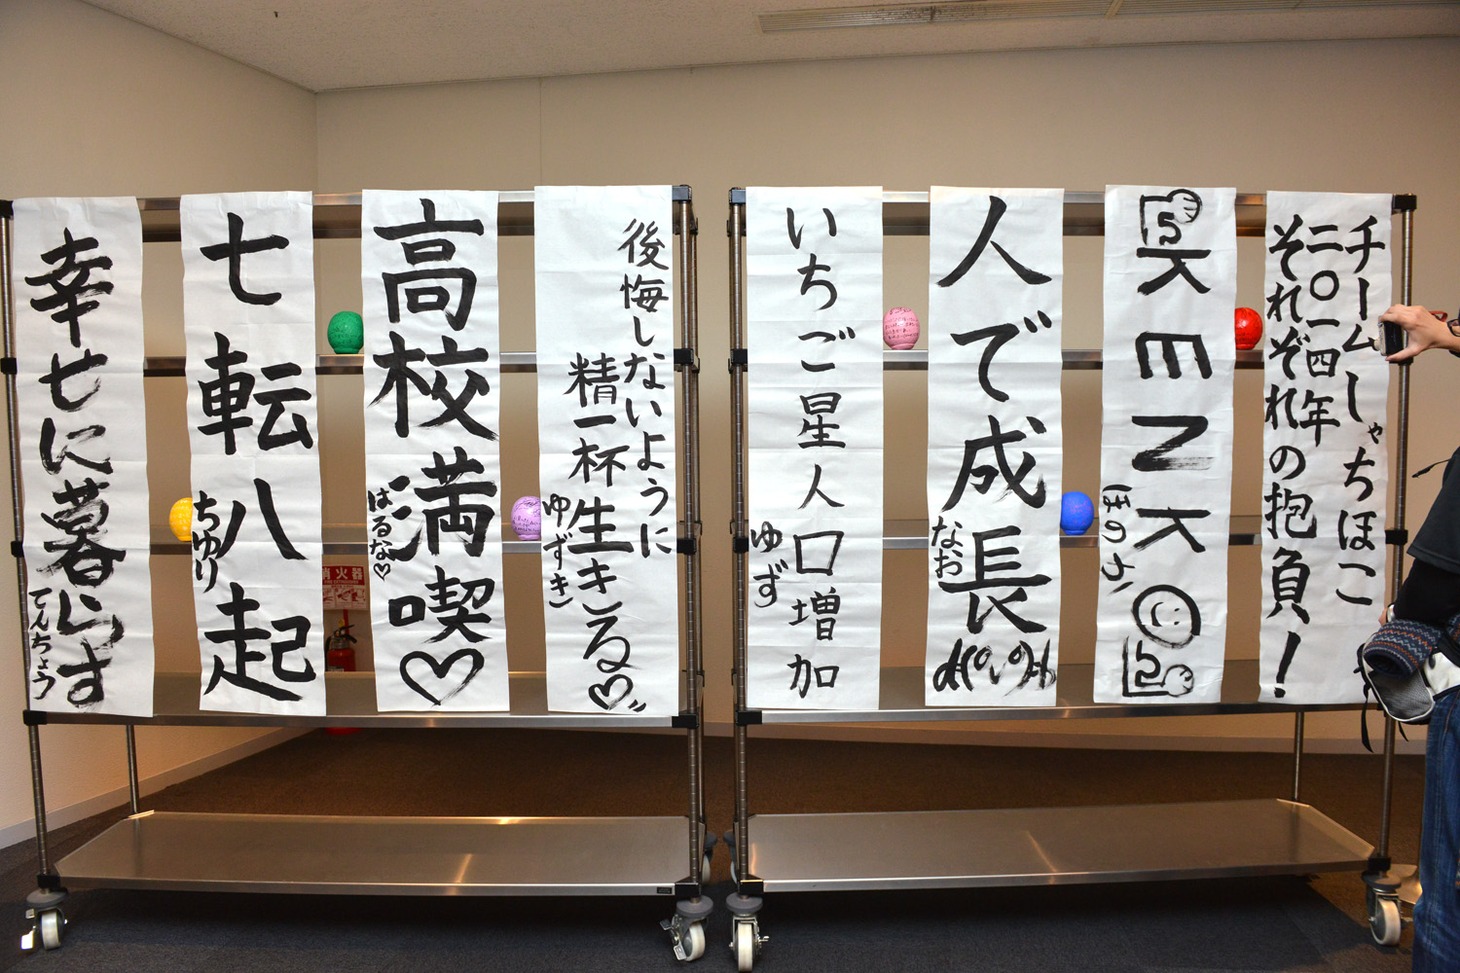 チームしゃちほこ
二〇一四年
それぞれの抱負!
KENKO
ほのか
人で成長
なお
いちご星人口増加
ゆず
後悔しないように
精一杯生きる♡
ゆずき
高校満喫♡
はるな♡
七転八起
ちゆり
幸せに暮らす
てんちょう
消火器